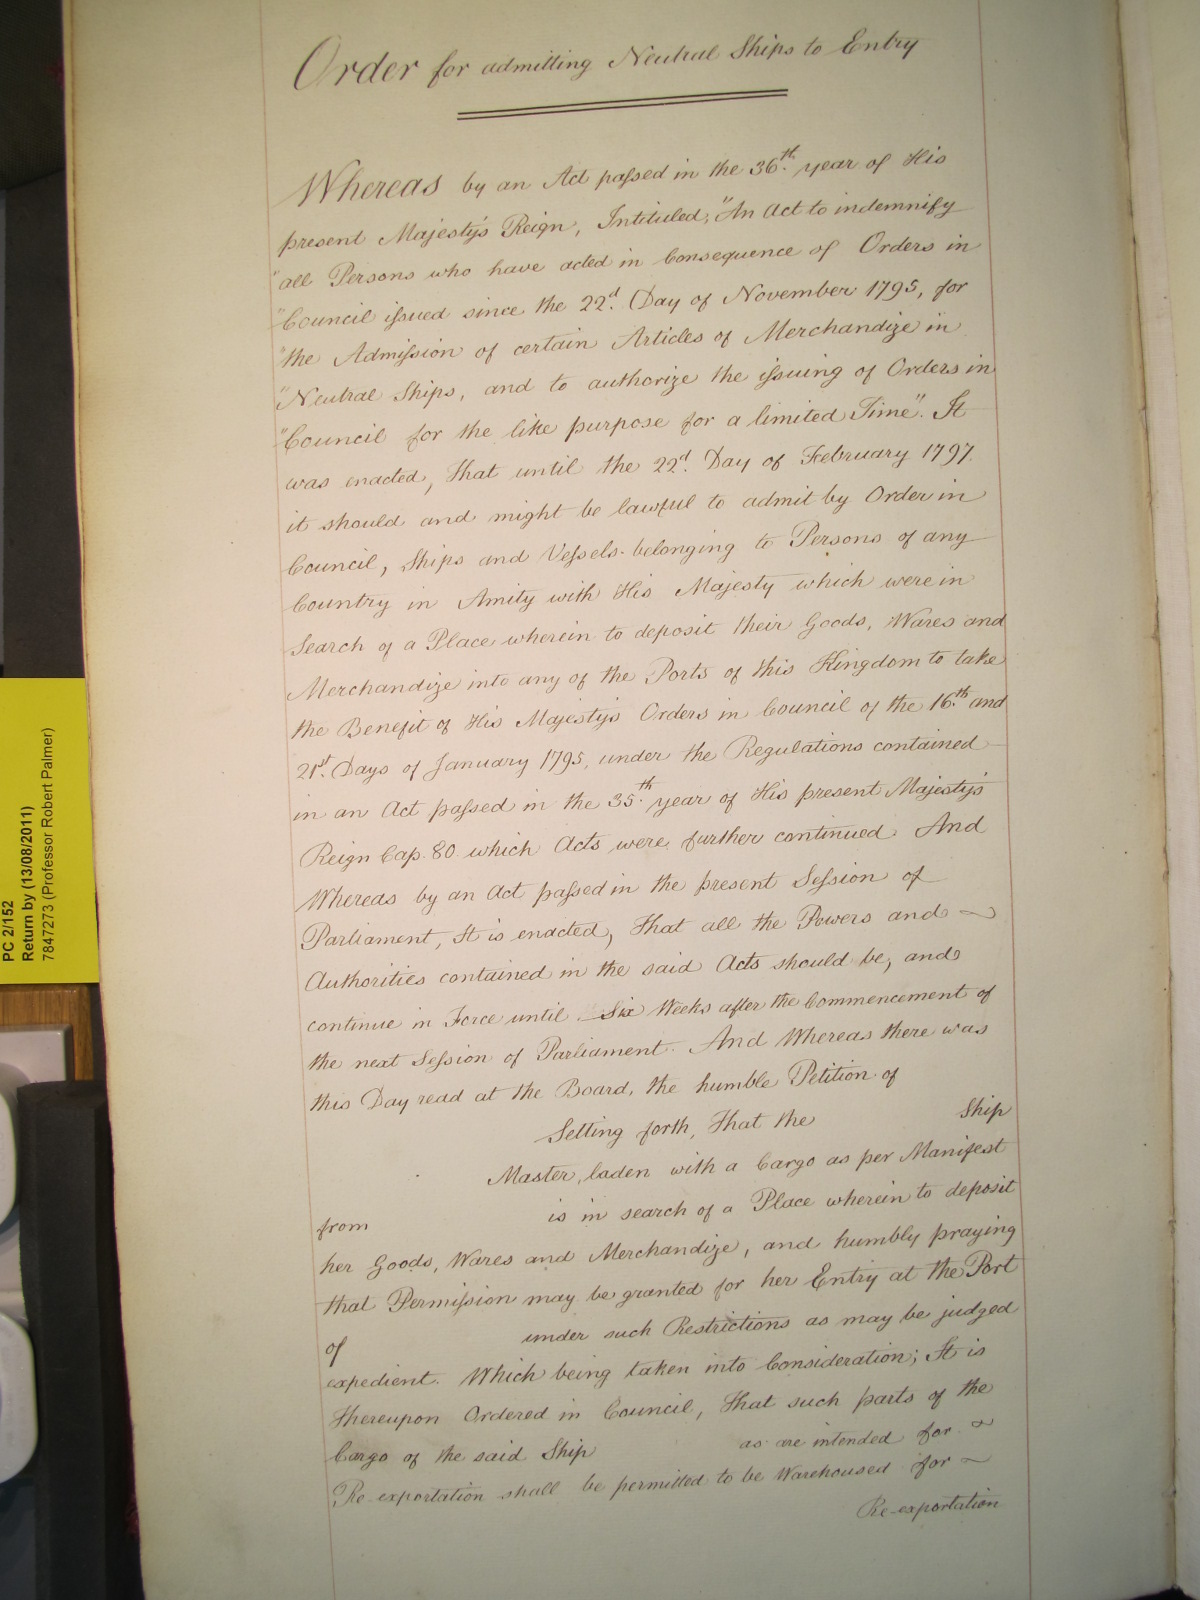 Order for admitting Neutral Ships to Entry
Whereas by an Act passed in the 36th. year of His
present Majesty's Reign, Intituled, "An Act to indemnify
"all Persons who have acted in Consequence of Orders in
"Council issued since the 22d. Day of November 1795, for
"the Admission of certain Articles of Merchandize in
"Neutral Ships, and to authorize the issuing of Orders in
"Council for the like purpose for a limited Time". It
was enacted, that until the 22d. Day of February 1797.
it should and might be lawful to admit by Order in
Council, Ships and Vessels belonging to Persons of any
Country in Amity with His Majesty which were in
Search of a Place wherein to deposit their Goods, Wares and
Merchandize into any of the Ports of this Kingdom to take
the Benefit of His Majesty's Orders in Council of the 16th. and
21st. Days of January 1795, under the Regulations contained
in an Act passed in the 35th. year of His present Majesty's
Reign Cap. 80 which Acts were further continued. And
Whereas by an Act passed in the present Session of
Parliament, It is enacted, That all the Powers and
Authorities contained in the said Acts should be, and
continue in Force until Six Weeks after the Commencement of
the next Session of Parliament. And Whereas there was
this Day read at the Board, the humble Petition of
Setting forth, That the Ship
Master, laden with a Cargo as per Manifest
from is in search of a Place wherein to deposit
her Goods, Wares and Merchandize, and humbly praying
that Permission may be granted for her Entry at the Port
of under such Restrictions as may be judged
expedient. Which being taken into Consideration; It is
thereupon Ordered in Council, That such parts of the
Cargo of the said Ship as are intended for
Re-exportation shall be permitted to be Warehoused for
Re-exportation
PC 2/152
Return by (13/08/2011)
7847273 (Professor Robert Palmer)